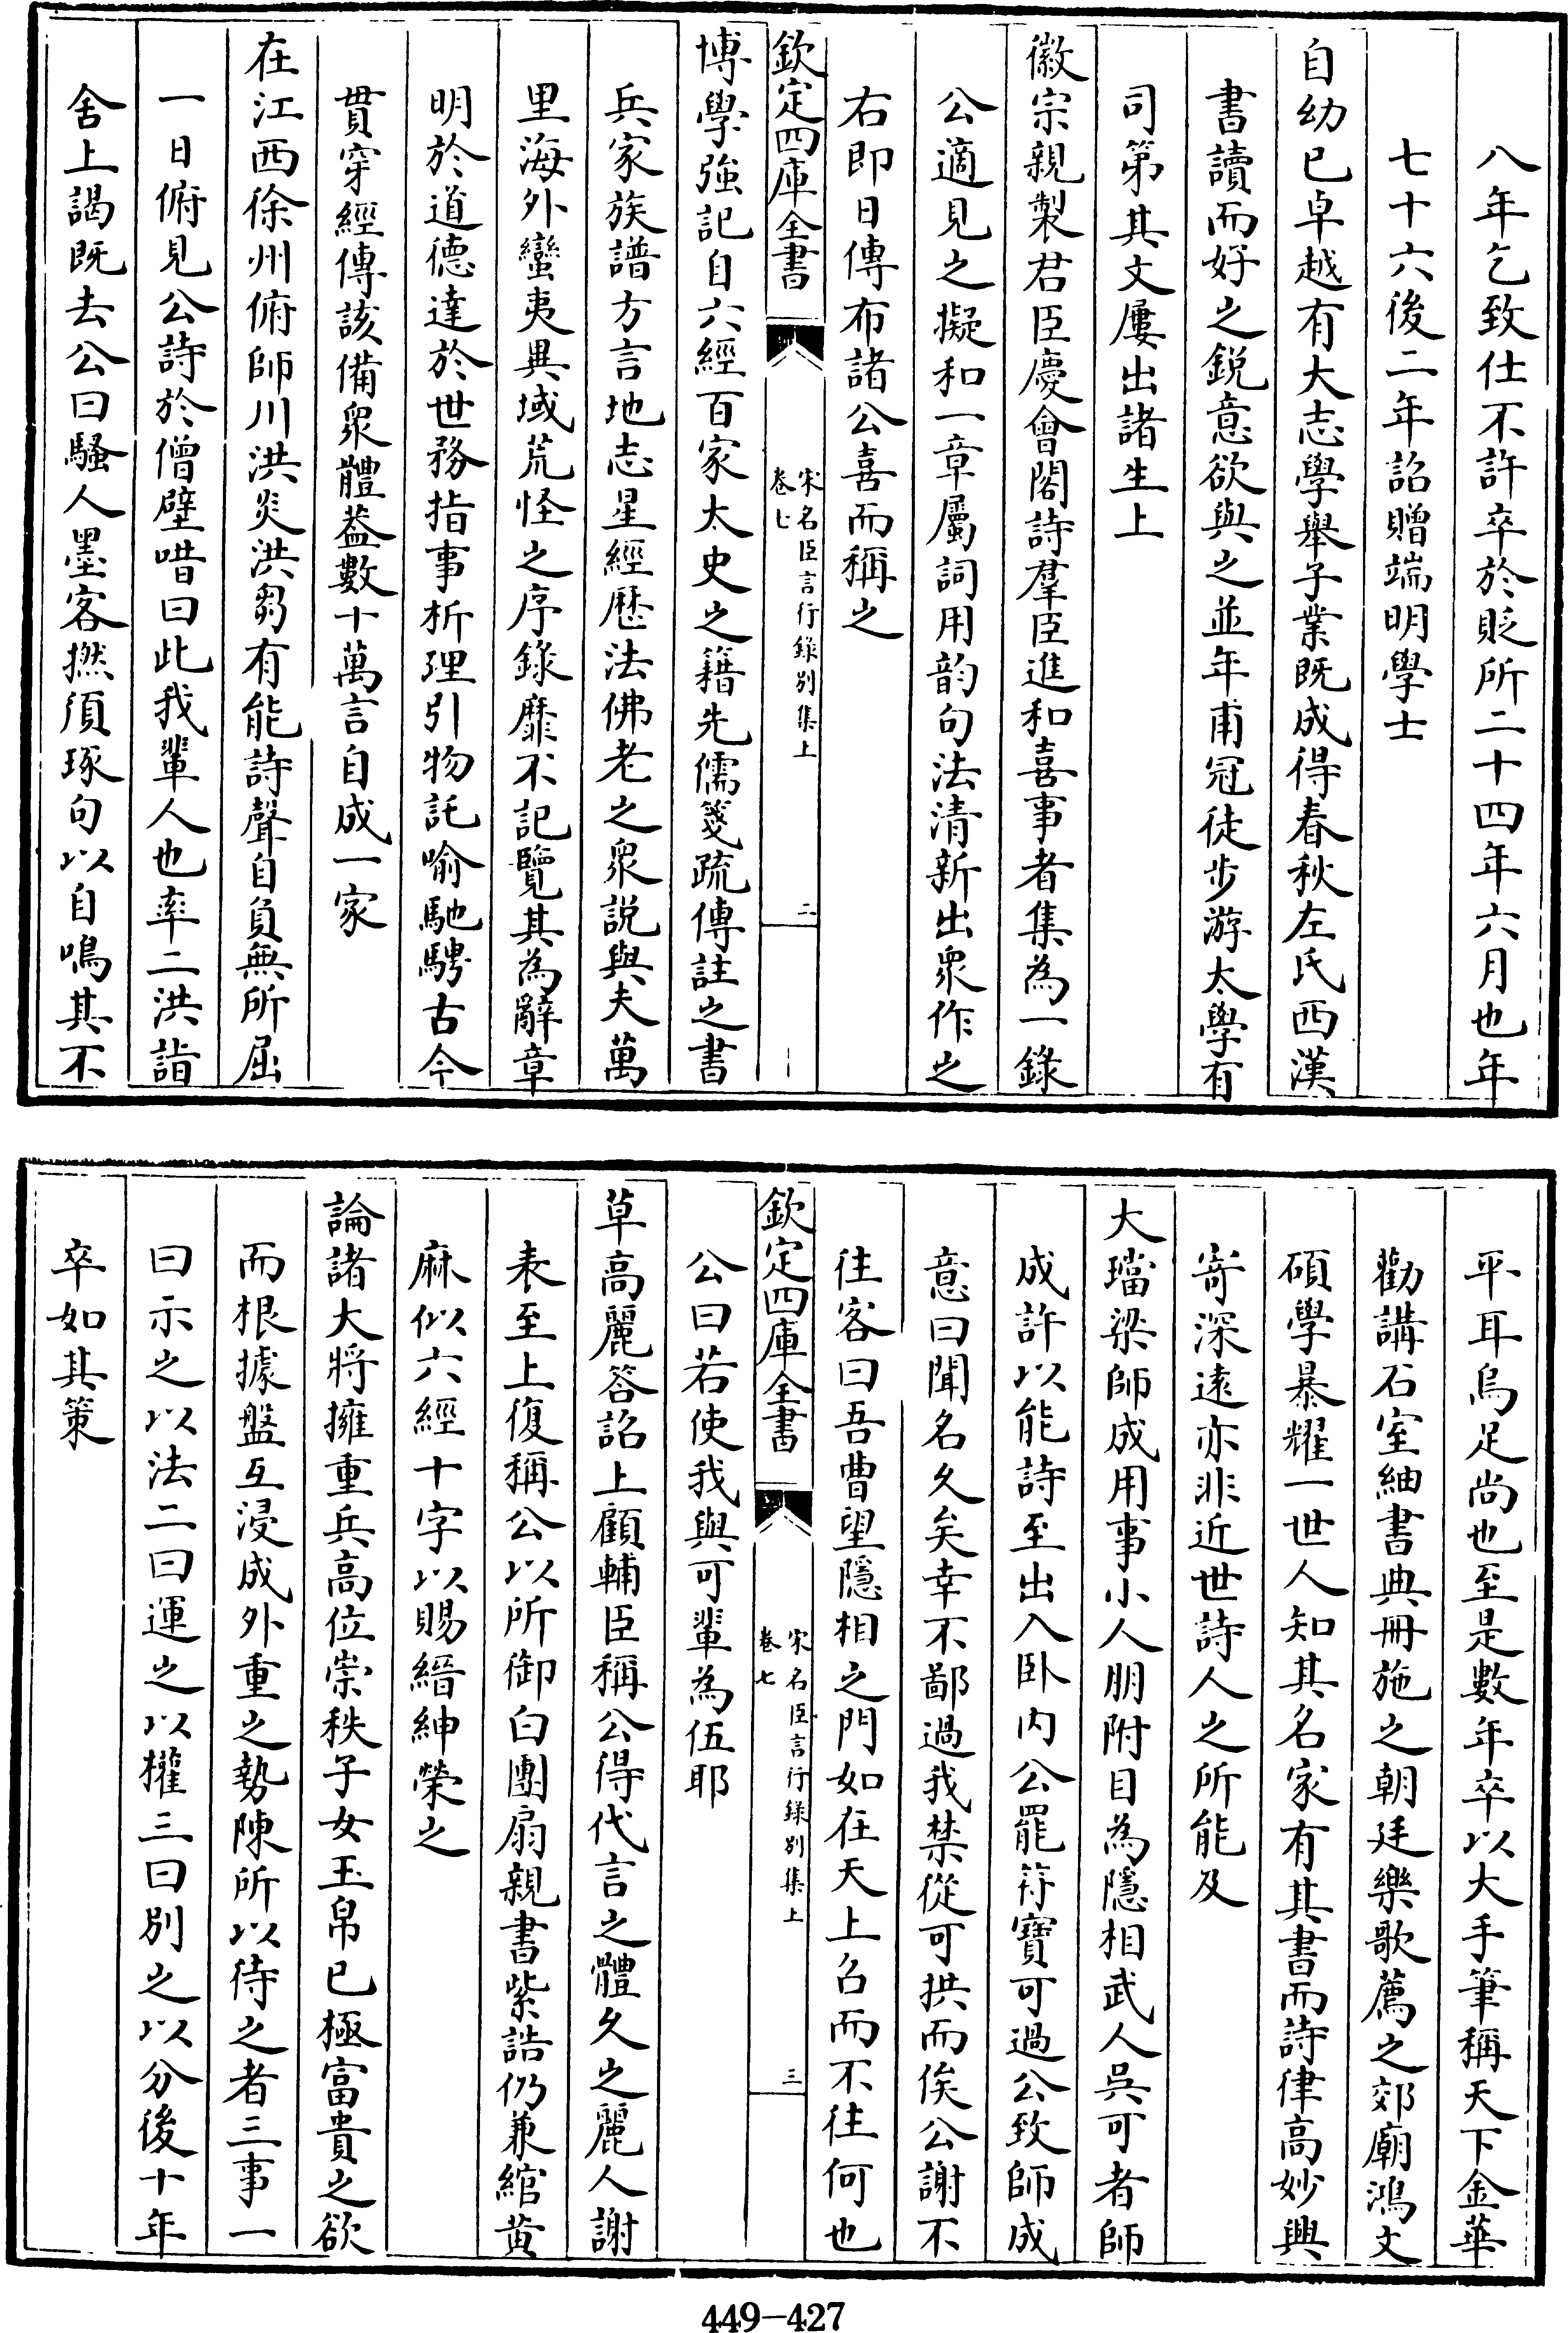 八年乞致仕不許卒於貶所二十四年六月也年
七十六後二年詔贈端明學士
自幼已卓越有大志學舉子業既成得春秋左氏西漢
書讀而好之鋭意欲與之並年甫冠徒步游太學有
司第其文屢出諸生上
徽宗親製君臣慶會閣詩羣臣進和喜事者集為一錄
公適見之擬和一章屬詞用韵句法清新出衆作之
右即日傳布諸公喜而稱之
欽定四庫全書
宋名臣言行錄别集上
卷七
二
博學強記自六經百家太史之籍先儒箋疏傳註之書
兵家族譜方言地志星經歴法佛老之衆説與夫萬
里海外蠻夷異域荒怪之序錄靡不記覽其為辭章
明於道德達於世務指事析理引物託喻馳騁古今
貫穿經傳該備衆體葢數十萬言自成一家
在江西徐州俯師川洪炎洪芻有能詩聲自負無所屈
一日俯見公詩於僧壁唶曰此我輩人也率二洪詣
舍上謁既去公曰騷人墨客撚須琢句以自鳴其不
平耳烏足尚也至是數年卒以大手筆稱天下金華
勸講石室紬書典冊施之朝廷樂歌薦之郊廟鴻文
碩學暴耀一世人知其名家有其書而詩律高妙興
寄深遠亦非近世詩人之所能及
大璫梁師成用事小人朋附目為隱相武人吳可者師
成許以能詩至出入卧内公罷符寶可過公致師成
意曰聞名久矣幸不鄙過我禁從可拱而俟公謝不
往客曰吾曹望隱相之門如在天上召而不往何也
欽定四庫全書
宋名臣言行錄别集上
卷七
三
公曰若使我與可輩為伍耶
草高麗答詔上顧輔臣稱公得代言之體久之麗人謝
表至上復稱公以所御白團扇親書紫誥仍兼綰黄
麻似六經十字以賜縉紳榮之
論諸大將擁重兵高位崇秩子女玉帛已極富貴之欲
而根據盤互浸成外重之勢陳所以待之者三事一
曰示之以法二曰運之以權三曰别之以分後十年
卒如其策
449-427